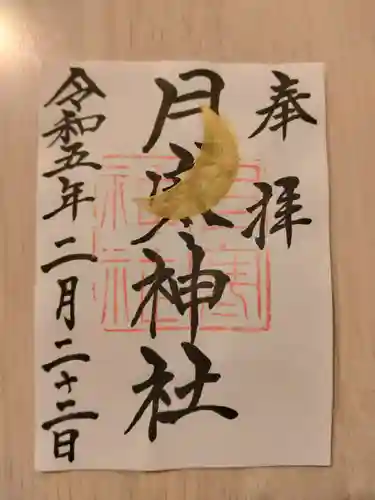 奉拝
月寒神社
令和五年二月二十二日